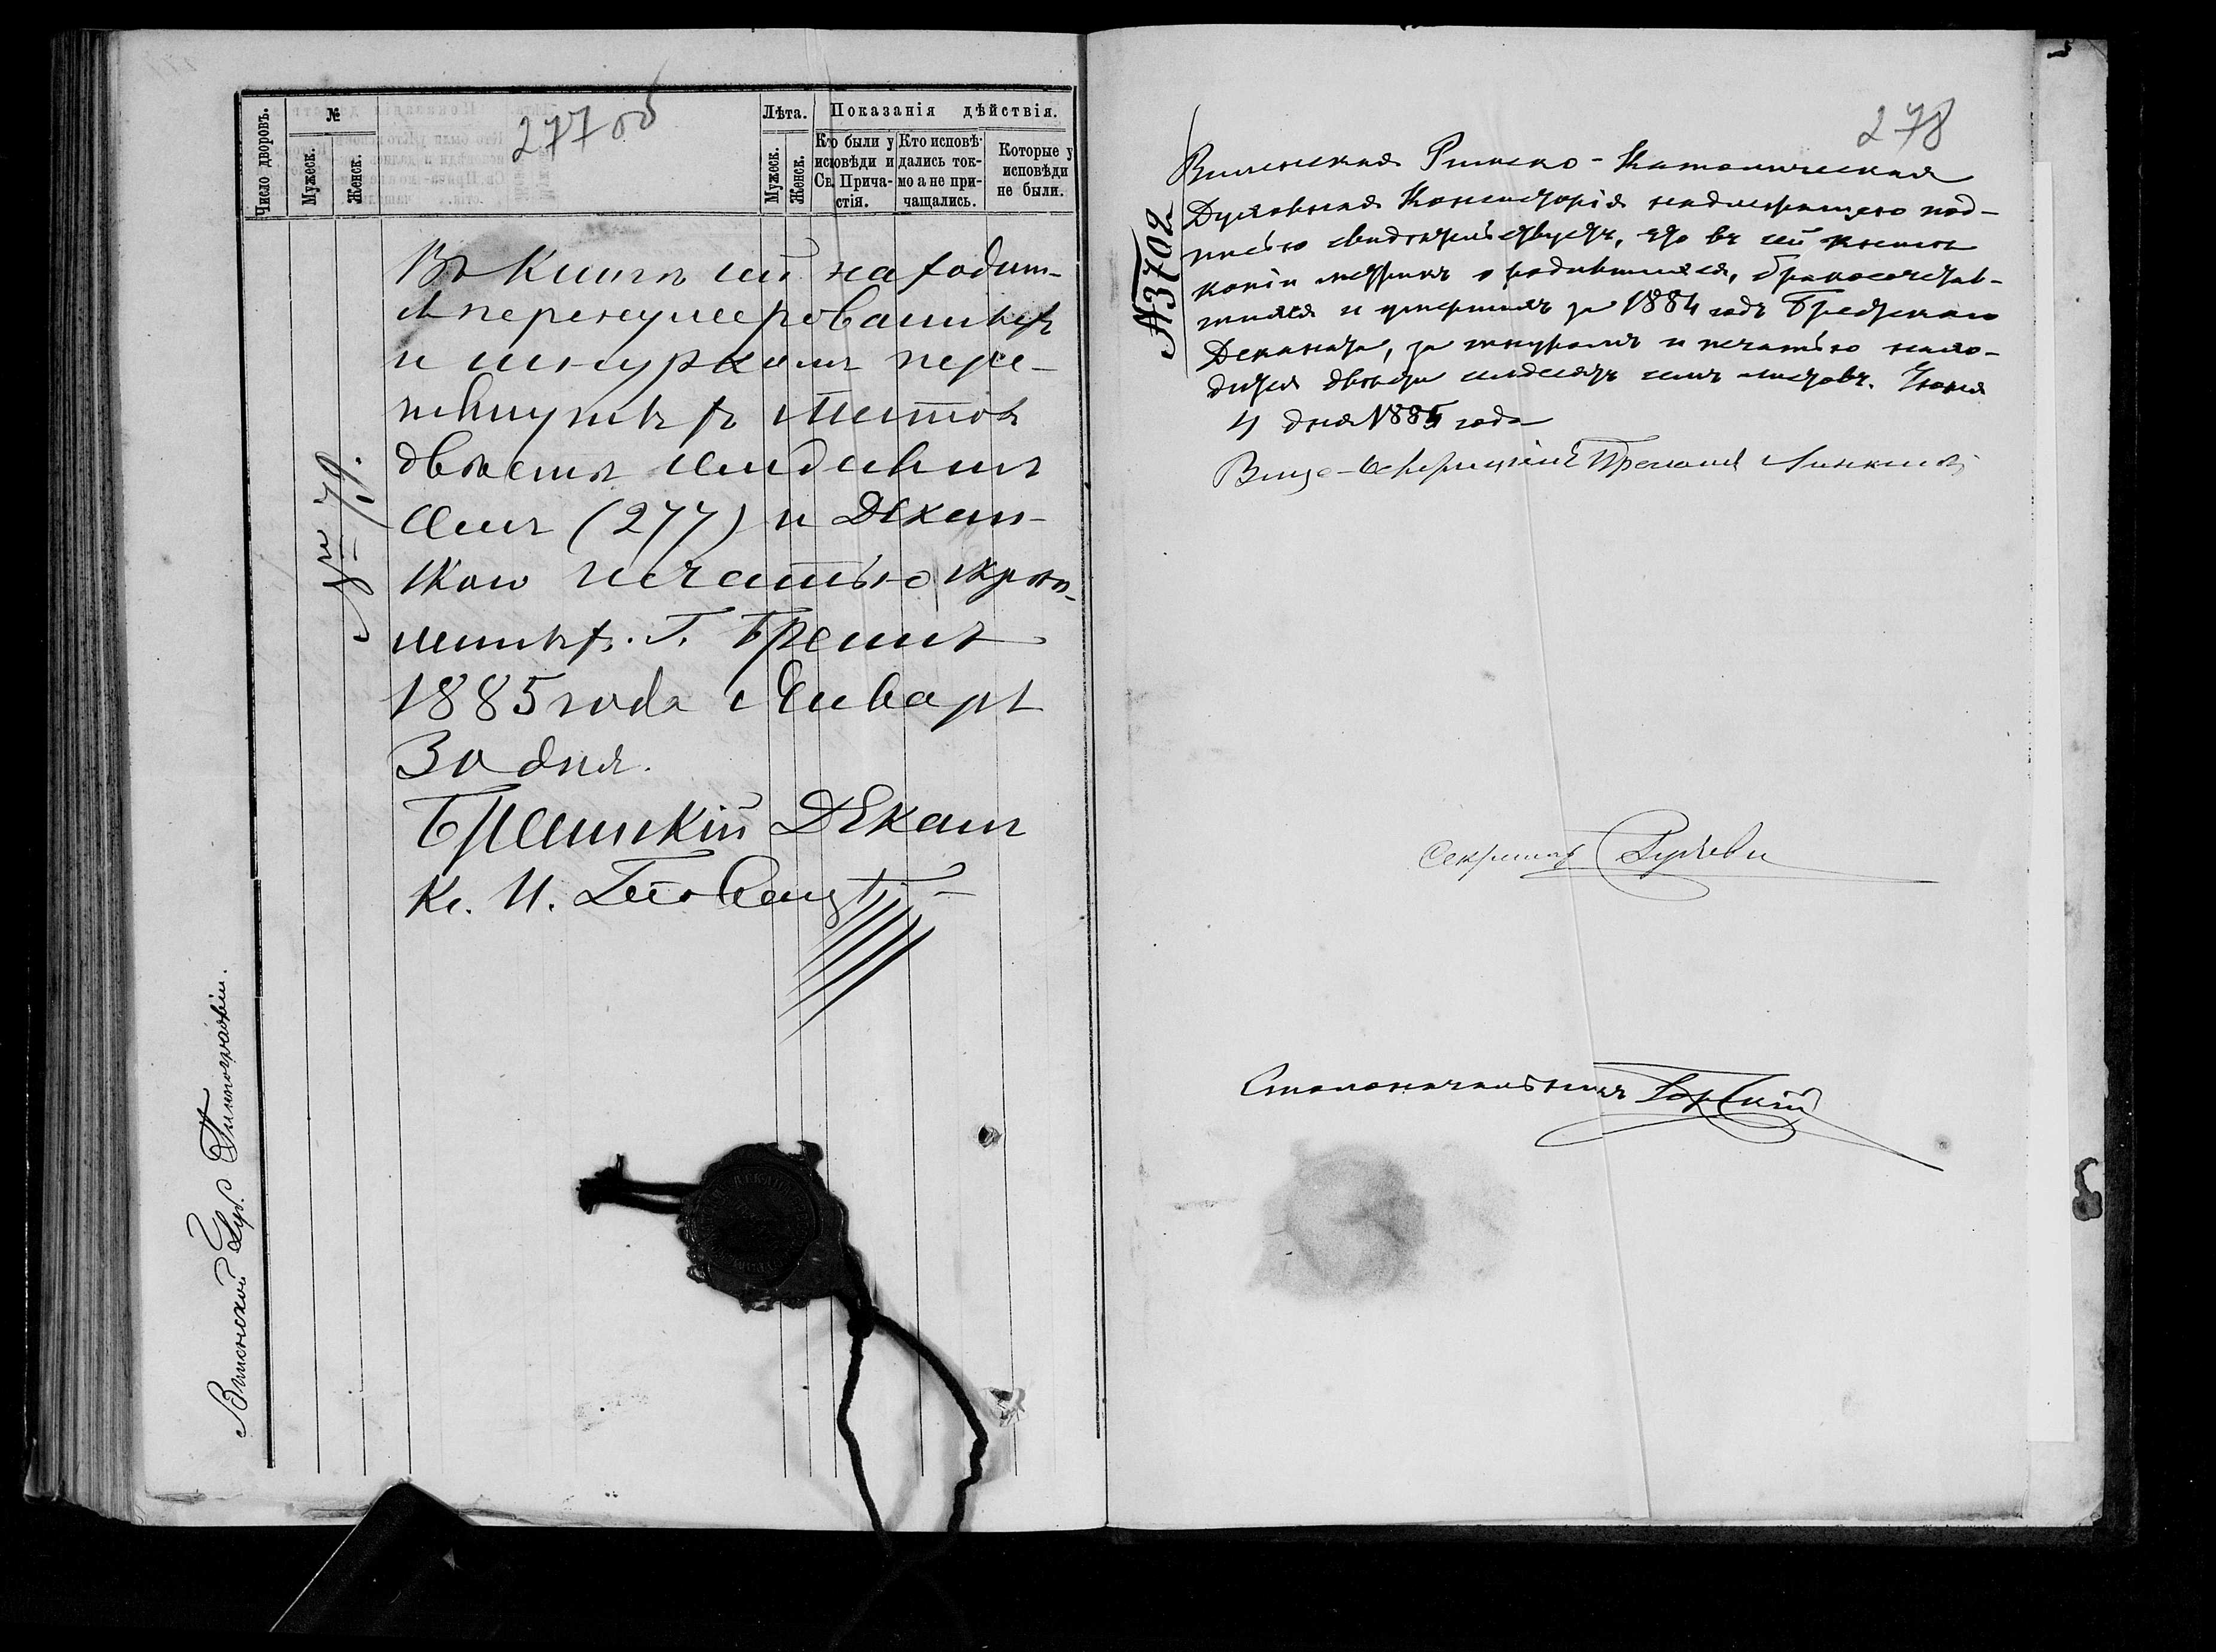 277 об
Число дворовъ.
№
Мужеск.
Женск.
Лѣта.
Мужеск.
Женск.
Показанія дѣйствія.
Кто были у
исповѣди и
Св. Прича-
стія.
Кто исповѣ-
дались ток-
мо а не при-
чащались.
Которые у
исповѣди
не были.
№ 79.
Въ Книгѣ сей находит-
ся перенумерованныхъ
и шнуркомъ пере-
тянутыхъ листовъ
двѣсти семдесятъ
семь (277) и Декан-
скою печатью скрѣп-
ленныхъ. Г. Брестъ
1885 года Января
30 дня.
Брестскій Деканъ
Кс. И.
Виленской Губ. Типографіи.
278
№3702
Виленская Римско-Католическая
Духовная Консисторія надлежащею под-
писью свидѣтельствуетъ, что въ сей книгѣ
копіи метрикъ о родившихся, бракосочетав-
шихся и умершихъ за 1884 годъ Брестскаго
Деканата, за шнуромъ и печатью нахо-
дится двѣсти семдесятъ семь листовъ. Іюня
4 дня 1885 года
Вице-Предсѣдатель Прелатъ
Секретарь
Столоначальникъ